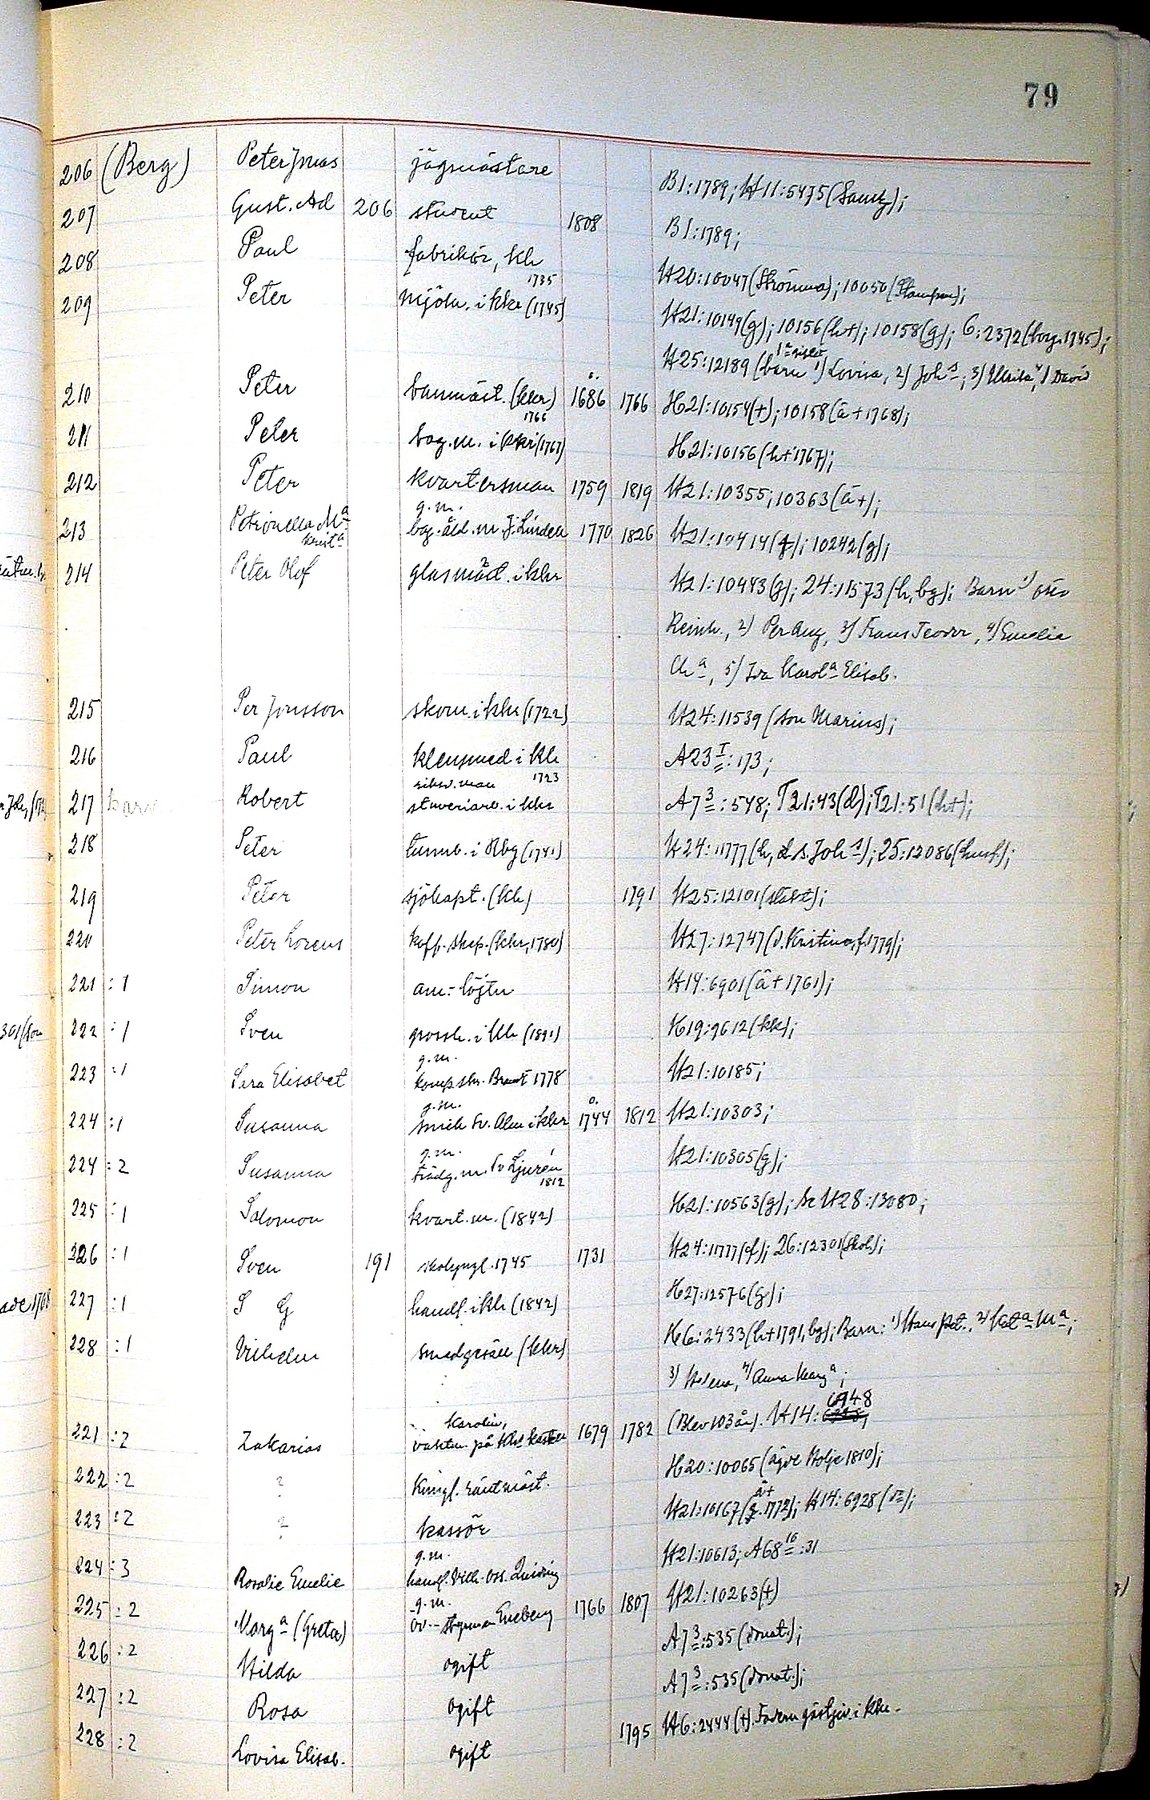 79
206 (Berg) Peter Jonas jägmästare B1:1789; H11:5475 (Samz);
207 Gust. Ad 206 student 1808 B1:1789;
208 Paul fabrikör, khr H20:10047 (Strömma); 10050 (Stampen);
209 Peter mjöln. i khr (1745) 1735 H21:10149(g); 10156(h+); 10158(g); 6:2372 (borg. 1745);
H25:12189 (barn 1) Lovisa, 2) Joh-s, 3) Ulrika, 4) David
210 Peter banmäst. (khr) ö. 1686 1766 H21:10154(+); 10158(ä+1768);
211 Peter bag.m. i khr (1767) 1766 H21:10156 (h+1767);
212 Peter kvartersman 1759 1819 H21:10355; 10363 (ä+);
213 Petronella M-a g.m. bag.åld.m. J. Lindell 1770 1826 H21:10414(g); 10242(g);
214 Peter Olof glasmäst. i khr H21:10443(g); 24:11573 (h, bg); Barn 1)
Reinh., 2) Per Aug, 3) Frans Teodor, 4) Emelia
Ch-a, 5) Ida Karol-a Elisab.
215 Per Jonsson skom. i khr (1722) H24:11539 (son Marius);
216 Paul klensmed i khr 1723 A23 I:173;
217 Robert stuveriarb. i khr A7 3:548; T21:43(d); T21:51 (h+);
218 Peter tunnb. i Rbg (1741) H24:11777 (h, d.s. Joh-s); 25:12086 (husf.);
219 Peter sjökapt. (khr) 1791 H25:12101 (släkt);
220 Peter Lorens koff. skep. (khr, 1780) H27:12747 (d. Kristina, f. 1779);
221 :1 Simon am:-löjtn H14:6901 (ä+1761);
222 :1 Sven grossh. i khr (1891) K19:9612 (kk);
223 :1 Sara Elisabet g.m. komp.skr. Brandt 1778 H21:10185;
224 :1 Susanna g.m. smeden Sv. Alm i khr ö. 1744 1812 H21:10303;
224 :2 Susanna g.m. trädg.m. Sv Ljurén 1812 H21:10305(g);
225 :1 Salomon kvart.m. (1842) H21:10563(g); se H28:13080;
226 :1 Sven 191 skolyngl. 1745 1731 H24:11777(f); 26:12301 (skol);
227 :1 S G handl. i khr (1842) H27:12576 (g);
228 :1 Vilhelm smedgesäll (khr) H6:2433 (h+1791, bg); Barn: 1) Hans Pet., 2) Kat-a M-a;
3) Helena, 4) Anna Marg-a;
221 :2 Zakarias Karolin, vaktm. på 1679 1782 (Blev 103 år). H14: 6948
222 :2 ? Kungl. räntmäst. H20:10065 (ägde Bolje 1810);
223 :2 ? kassör H21:10167 (ä+ 1772); H14:6928
224 :3 Rosalie Emelie g.m. handl. Vilh. Osc. Quiding H21:10613; A68 16:31
225 :2 Marg-a (Greta) g.m. öv.-styrman Eneberg 1766 1807 H21:10263(+)
226 :2 Hilda ogift A7 3:535 (donat.);
227 :2 Rosa ogift A7 3:535 (donat.);
228 :2 Lovisa Elisab. ogift 1795 H6:2444 (+). Fadern gästgiv. i khr.